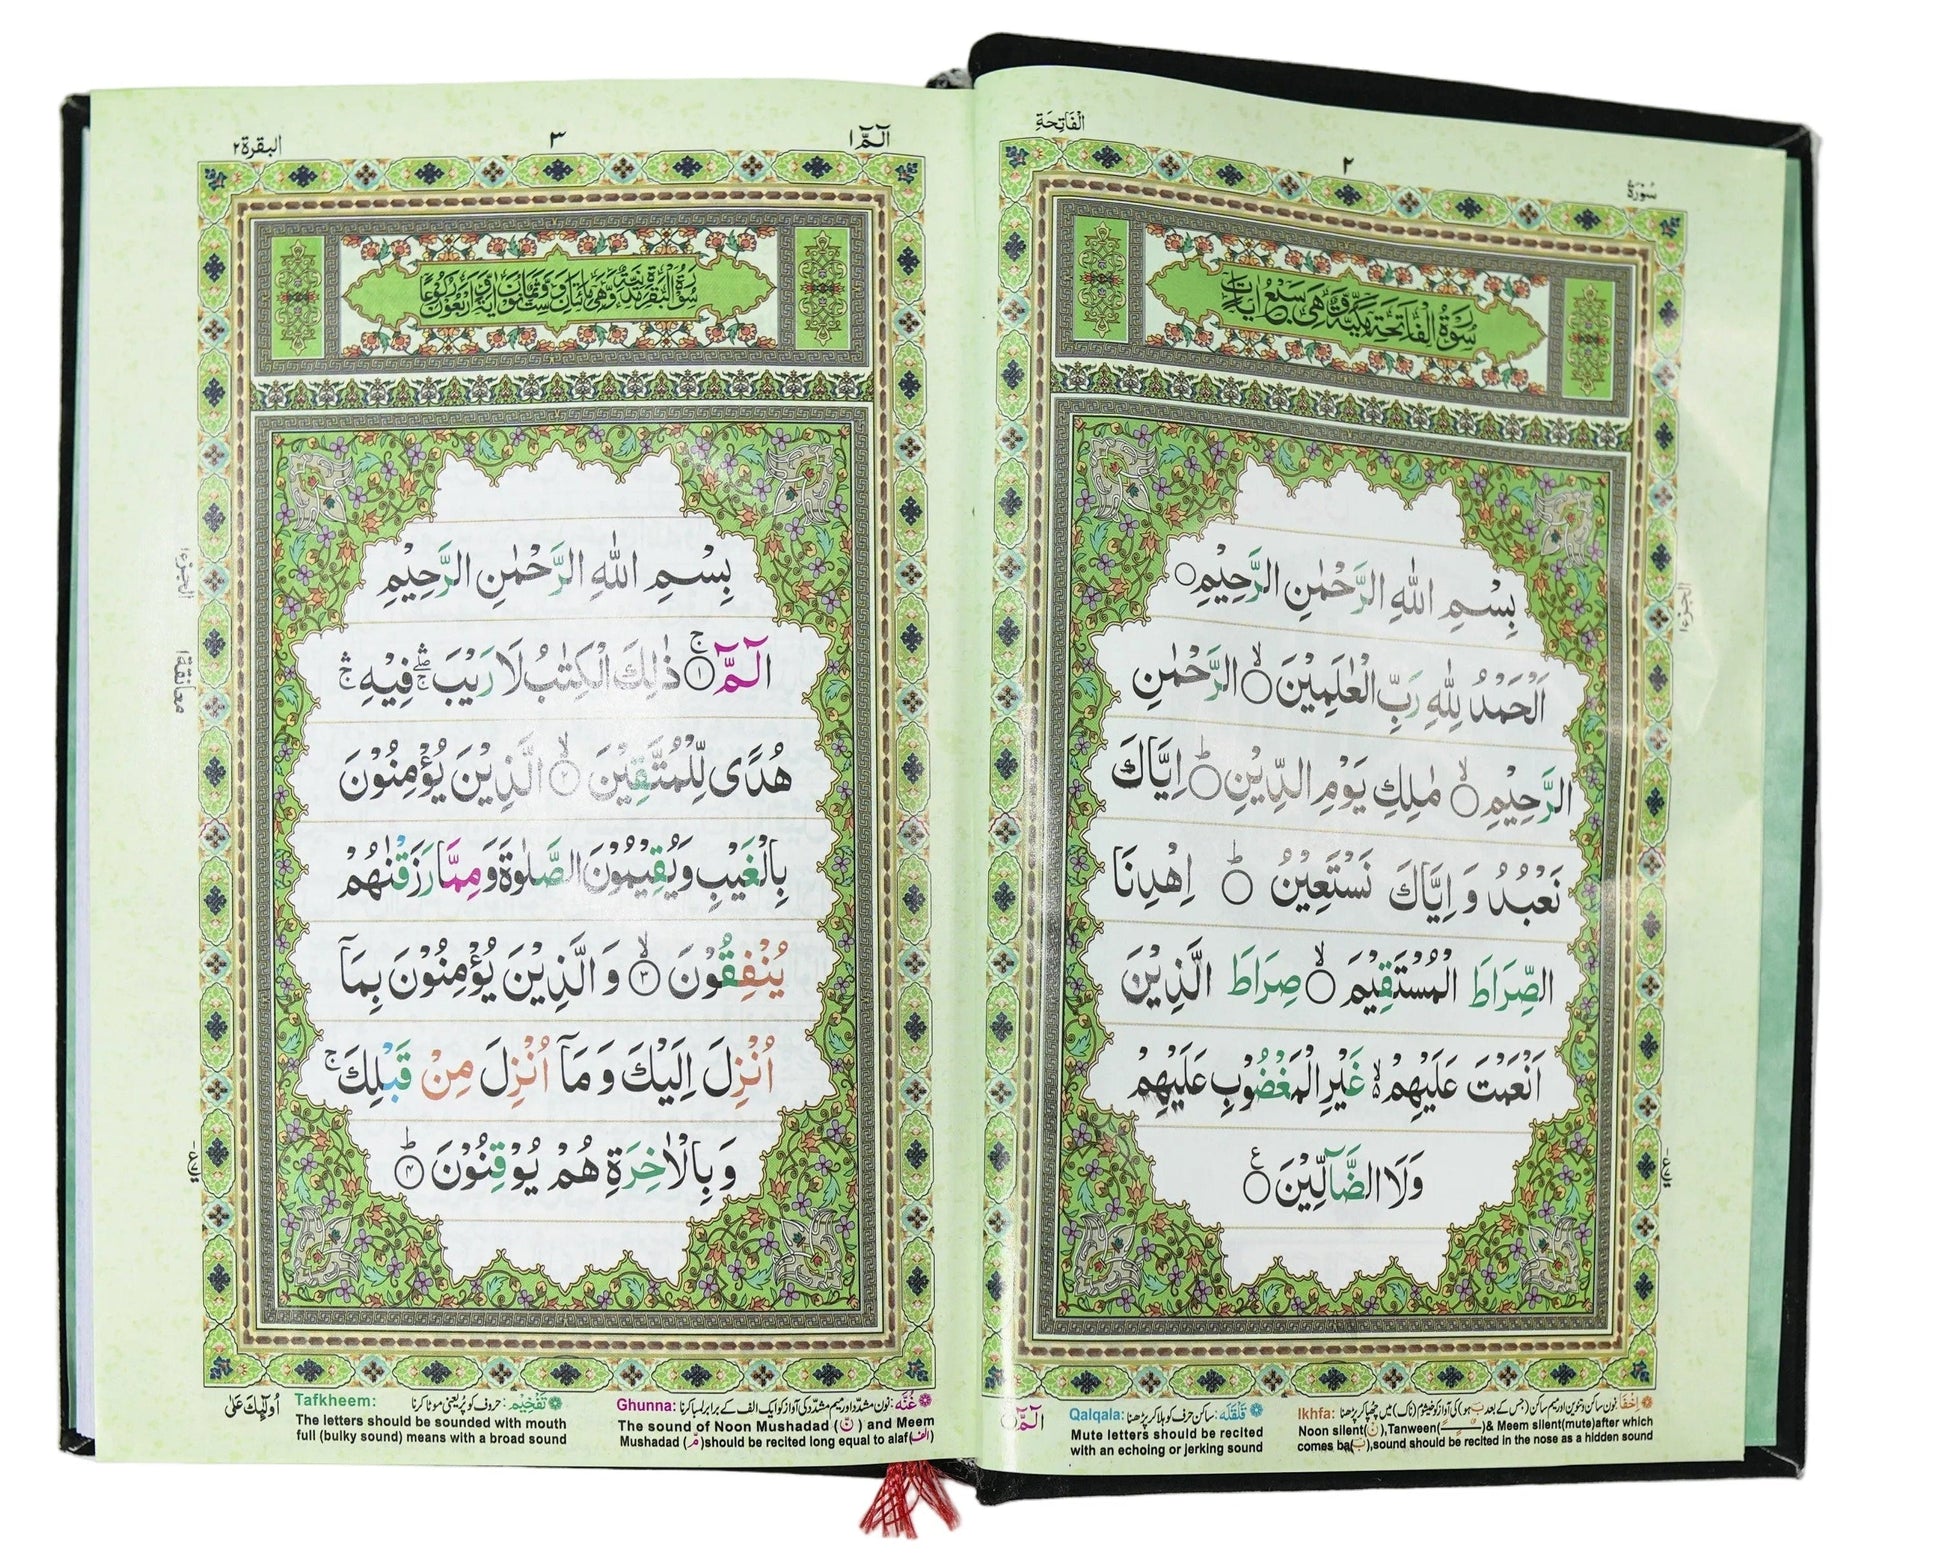 سُوْرَةُ
٢
اَلْفَاتِحَةِ
سُوْرَةُ الْفَاتِحَةِ مَكِّيَّةٌ وَّهِيَ سَبْعُ اٰيَاتٍ
بِسْمِ اللّٰهِ الرَّحْمٰنِ الرَّحِيْمِ ○
اَلْحَمْدُ لِلّٰهِ رَبِّ الْعٰلَمِيْنَ ○ۙ الرَّحْمٰنِ
الرَّحِيْمِ ○ۙ مٰلِكِ يَوْمِ الدِّيْنِ ○ؕ اِيَّاكَ
نَعْبُدُ وَ اِيَّاكَ نَسْتَعِيْنُ ○ؕ اِهْدِنَا
الصِّرَاطَ الْمُسْتَقِيْمَ ○ۙ صِرَاطَ الَّذِيْنَ
اَنْعَمْتَ عَلَيْهِمْ ۙ۬ غَيْرِ الْمَغْضُوْبِ عَلَيْهِمْ
وَلَا الضَّآلِّيْنَ ○ع
اِخْفَا: نون ساکن و تنوین اور میم ساکن (جس کے بعد ب ہو) کی آواز کو خیشوم (ناک) میں چھپا کر پڑھنا
Ikhfa: Noon silent(ن),Tanween( ـًـٍـٌ )& Meem silent(mute)after which
comes ba(ب),sound should be recited in the nose as a hidden sound
قَلْقَلَه: ساکن حرف کو ہلا کر پڑھنا
Qalqala: Mute letters should be recited
with an echoing or jerking sound
الٓمّٓ
الٓمّٓ ١
٣
البقرة ٢
سُوْرَةُ الْبَقَرَةِ مَدَنِيَّةٌ وَّهِيَ مِائَتَانِ وَسِتٌّ وَّثَمَانُوْنَ اٰيَةً وَّاَرْبَعُوْنَ رُكُوْعًا
بِسْمِ اللّٰهِ الرَّحْمٰنِ الرَّحِيْمِ
الٓمّٓ ۚ ١ ذٰلِكَ الْكِتٰبُ لَا رَيْبَ ۛۖۚ فِيْهِ ۛۚ
هُدًى لِّلْمُتَّقِيْنَ ۙ ٢ الَّذِيْنَ يُؤْمِنُوْنَ
بِالْغَيْبِ وَيُقِيْمُوْنَ الصَّلٰوةَ وَمِمَّا رَزَقْنٰهُمْ
يُنْفِقُوْنَ ۙ ٣ وَ الَّذِيْنَ يُؤْمِنُوْنَ بِمَآ
اُنْزِلَ اِلَيْكَ وَ مَآ اُنْزِلَ مِنْ قَبْلِكَ ۚ
وَ بِالْاٰخِرَةِ هُمْ يُوْقِنُوْنَ ؕ ٤
معانقة ١
غُنَّه: نون مشدّد اور میم مشدّد کی آواز کو ایک الف کے برابر لمبا کرنا
Ghunna: The sound of Noon Mushadad (نّ) and Meem
Mushadad (مّ)should be recited long equal to alaf(الف)
تَفْخِيْم: حروف کو پُر یعنی موٹا کرنا
Tafkheem:
The letters should be sounded with mouth
full (bulky sound) means with a broad sound
اُولٰٓئِكَ عَلٰى